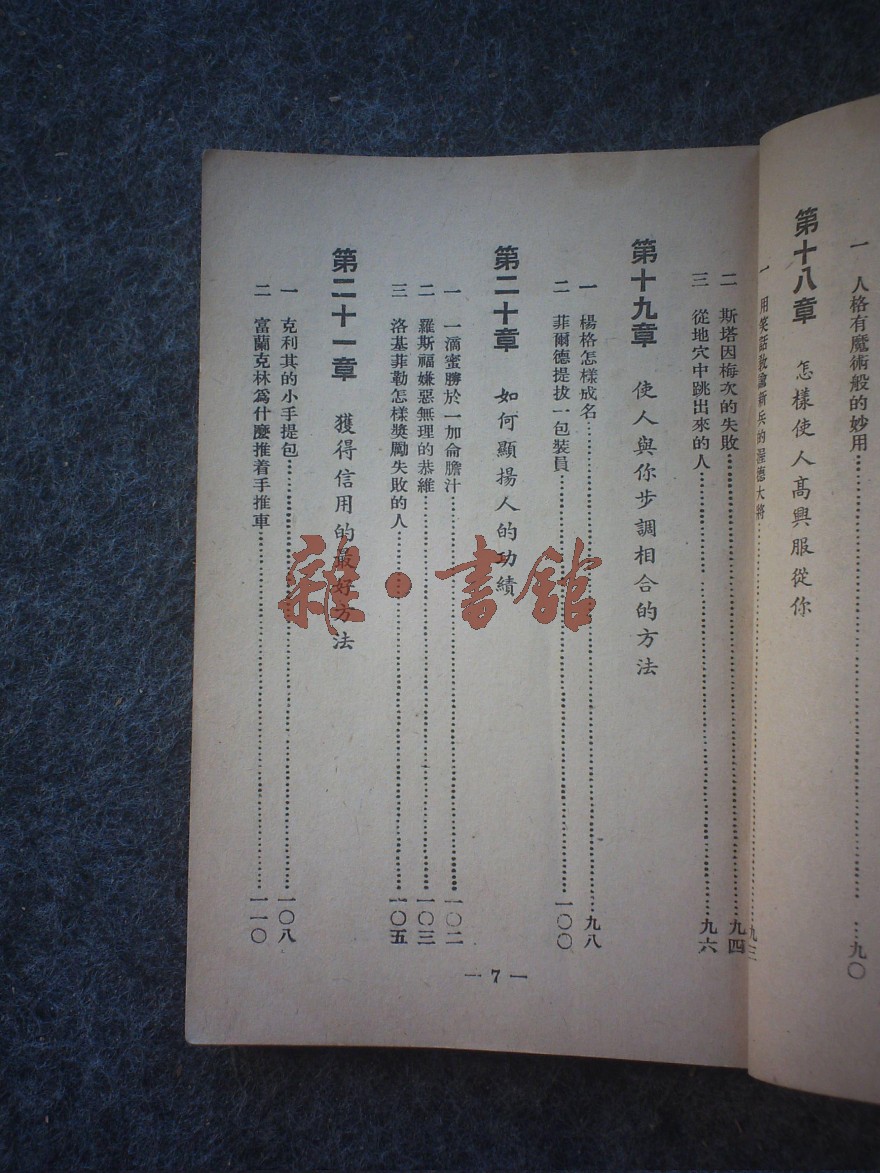 一　人格有魔術般的妙用……九〇
第十八章　怎樣使人高興服從你
一　用笑話教諭新兵的渥德大將……九三
二　斯塔因梅次的失敗……九四
三　從地穴中跳出來的人……九六
第十九章　使人與你步調相合的方法
一　楊格怎樣成名……九八
二　菲爾德提拔一包裝員……一〇〇
第二十章　如何顯揚人的功績
一　一滴蜜勝於一加侖膽汁……一〇二
二　羅斯福嫌惡無理的恭維……一〇三
三　洛基菲勒怎樣獎勵失敗的人……一〇五
第二十一章　獲得信用的最好方法
一　克利其的小手提包……一〇八
二　富蘭克林爲什麼推着手推車……一一〇
— 7 —
雜·書館